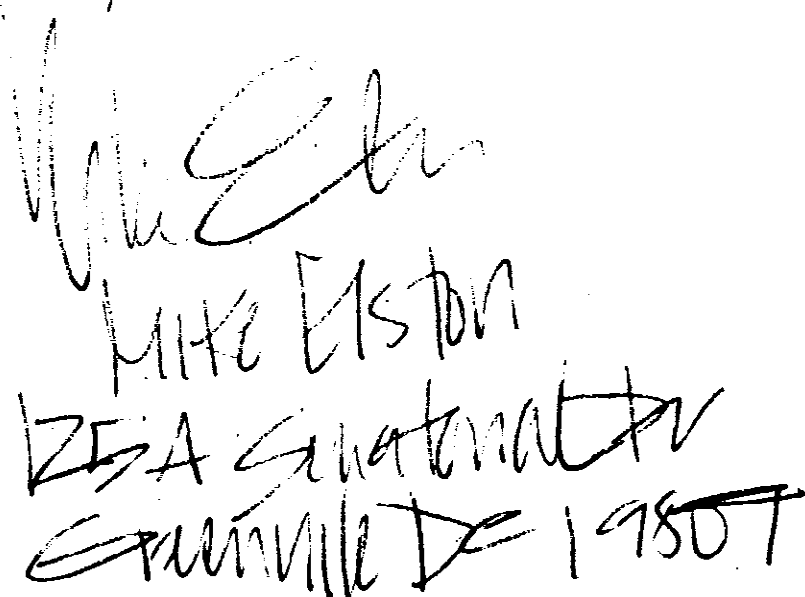 Mike Elston
Mike Elston
125A Senatorial Dr
Greenville De 19807